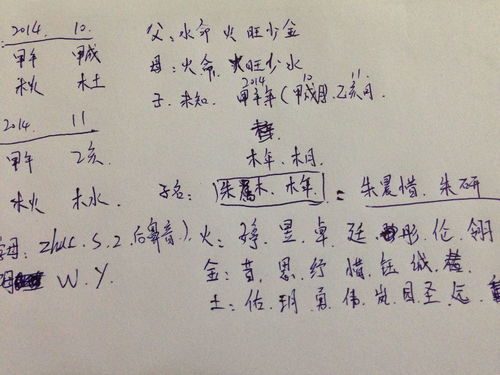 2014. 10.
甲午 甲戌
木火 木土
2014. 11
甲午 乙亥
木火 木水
父: 水命 火旺少金
母: 火命, 火旺少水
子. 未知. 2014 甲午年 (10 甲戌月. 11. 乙亥月.
木年. 木月
子名: 朱属木. 木年. = 朱晨惜. 朱研
字母: zhuc. s. z. 后鼻音) 火: 昱. 卓. 廷. 彤. 伦. 翎
W. Y. 金: 思. 纾. 惜. 钰. 诚.
土: 佑. 玥. 勇. 伟. 岚. 圣. 远.